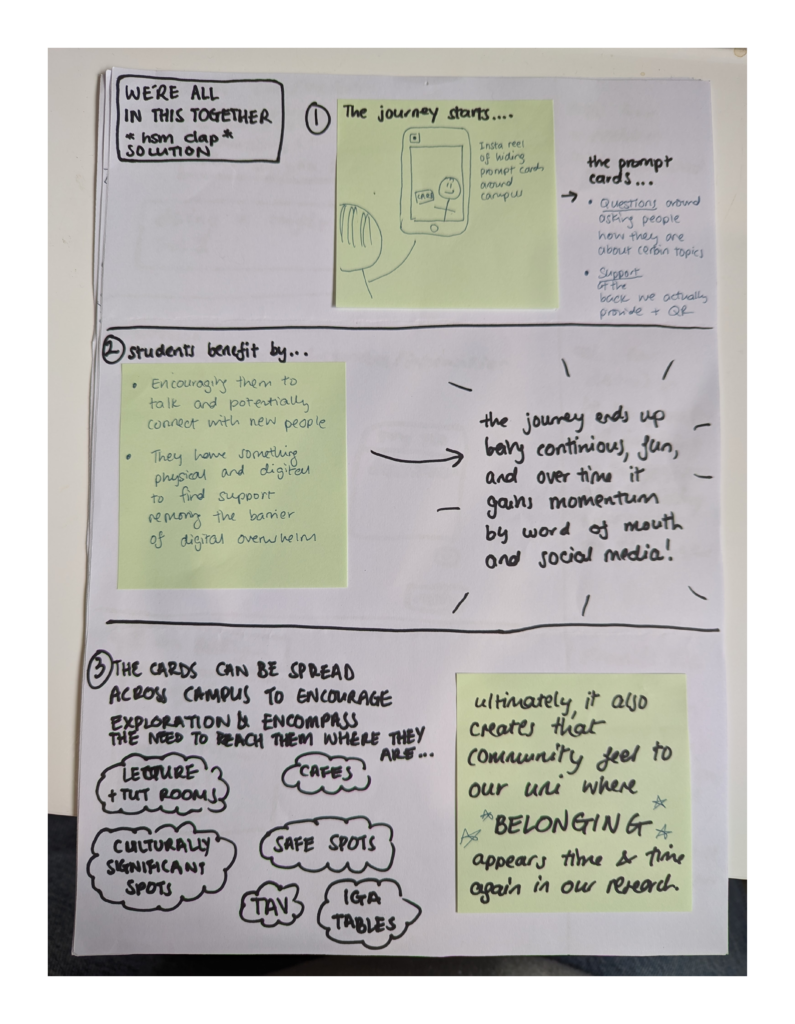 WE'RE ALL
IN THIS TOGETHER
*hsm clap*
SOLUTION
① The journey starts....
CARD
Insta reel
of hiding
prompt cards
around
campus
the prompt
cards...
• Questions around
asking people
how they are
about certain topics
• Support
at the
back we actually
provide + QR
② students benefit by...
• Encouraging them to
talk and potentially
connect with new people
• They have something
physical and digital
to find support
removing the barrier
of digital overwhelm
the journey ends up
being continious, fun,
and over time it
gains momentum
by word of mouth
and social media!
③ THE CARDS CAN BE SPREAD
ACROSS CAMPUS TO ENCOURAGE
EXPLORATION & ENCOMPASS
THE NEED TO REACH THEM WHERE THEY
ARE...
LECTURE
+ TUT ROOMS
CAFES
CULTURALLY
SIGNIFICANT
SPOTS
SAFE SPOTS
TAV
IGA
TABLES
ultimately, it also
creates that
community feel to
our uni where
BELONGING
appears time & time
again in our research